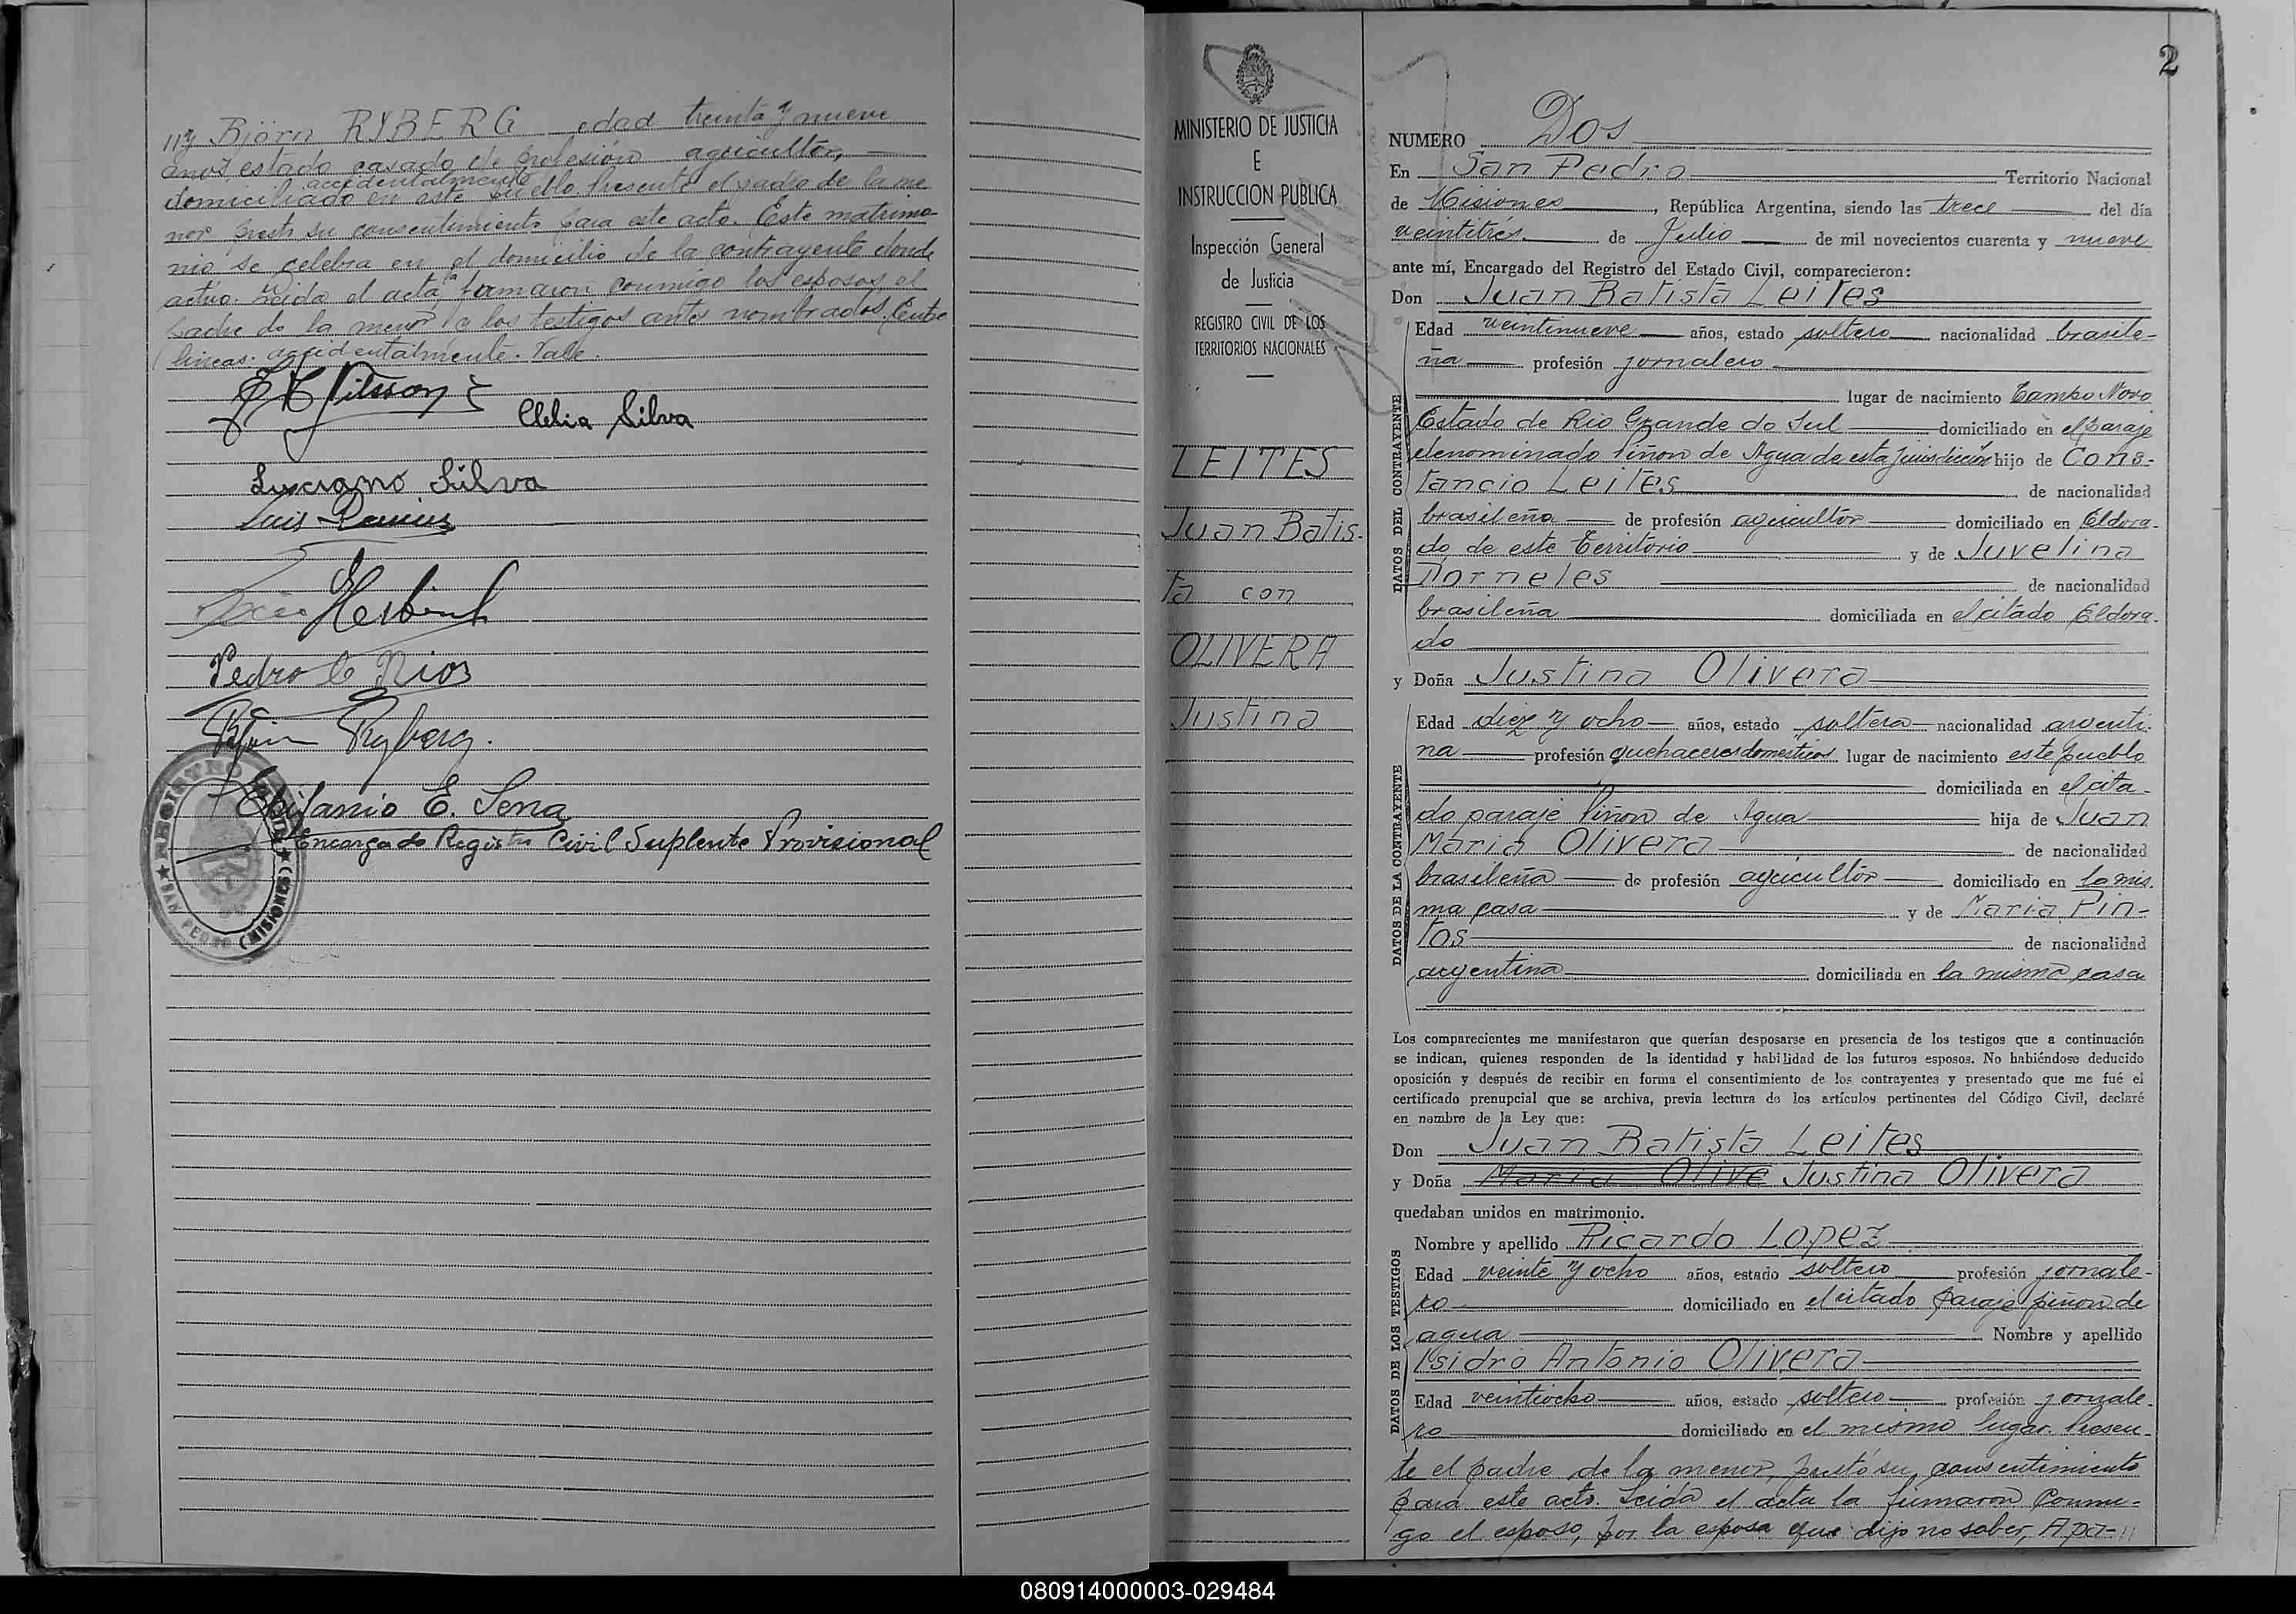 11y Björn RYBERG edad treinta y nueve
años, estado casado de profesión agricultor,
accidentalmente
domiciliado en este pueblo. Presente el padre de la me
nor prestó su consentimiento para este acto. Este matrimo-
nio se celebra en el domicilio de la contrayente donde
actúo. Leida el acta la firmaron conmigo los esposos, el
padre de la menor y los testigos antes nombrados. Entre
lineas: accidentalmente. Vale.
Nilsson
Clelia Silva
Luciano Silva
Luis
Pedro C Rios
Björn Ryberg.
Epifanio E. Sena
Encargado Registro Civil Suplente Provisional
REGISTRO CIVIL
★ SAN PEDRO (MISIONES) ★
MINISTERIO DE JUSTICIA
E
INSTRUCCION PUBLICA
Inspección General
de Justicia
REGISTRO CIVIL DE LOS
TERRITORIOS NACIONALES
LEITES
Juan Batis-
ta con
OLIVERA
Justina
2
NUMERO Dos
En San Pedro Territorio Nacional
de Misiones, República Argentina, siendo las trece del día
veintitrés de Julio de mil novecientos cuarenta y nueve
ante mí, Encargado del Registro del Estado Civil, comparecieron:
Don Juan Batista Leites
DATOS DEL CONTRAYENTE
Edad veintinueve años, estado soltero nacionalidad brasile-
ña profesión jornalero
lugar de nacimiento Campo Novo
Estado de Rio Grande do Sul domiciliado en el paraje
denominado Piñon de Agua de esta jurisdicción hijo de Cons-
tancio Leites de nacionalidad
brasileña de profesión agricultor domiciliado en Eldora-
do de este Territorio y de Juvelina
Dorneles de nacionalidad
brasileña domiciliada en el citado Eldora-
do
y Doña Justina Olivera
DATOS DE LA CONTRAYENTE
Edad diez y ocho años, estado soltera nacionalidad argenti-
na profesión quehaceres domesticos lugar de nacimiento este pueblo
domiciliada en el cita-
do paraje Piñon de Agua hija de Juan
Maria Olivera de nacionalidad
brasileña de profesión agricultor domiciliado en la mis-
ma casa y de Maria Pin-
tos de nacionalidad
argentina domiciliada en la misma casa
Los comparecientes me manifestaron que querían desposarse en presencia de los testigos que a continuación
se indican, quienes responden de la identidad y habilidad de los futuros esposos. No habiéndose deducido
oposición y después de recibir en forma el consentimiento de los contrayentes y presentado que me fué el
certificado prenupcial que se archiva, previa lectura de los artículos pertinentes del Código Civil, declaré
en nombre de la Ley que:
Don Juan Batista Leites
y Doña Maria Olive Justina Olivera
quedaban unidos en matrimonio.
DATOS DE LOS TESTIGOS
Nombre y apellido Ricardo Lopez
Edad veinte y ocho años, estado soltero profesión jornale-
ro domiciliado en el citado paraje piñon de
agua Nombre y apellido
Isidro Antonio Olivera
Edad veintiocho años, estado soltero profesión jornale-
ro domiciliado en el mismo lugar. Presen-
te el padre de la menor, prestó su consentimiento
para este acto. Leida el acta la firmaron conmi-
go el esposo, por la esposa que dijo no saber, A pa-11
080914000003-029484